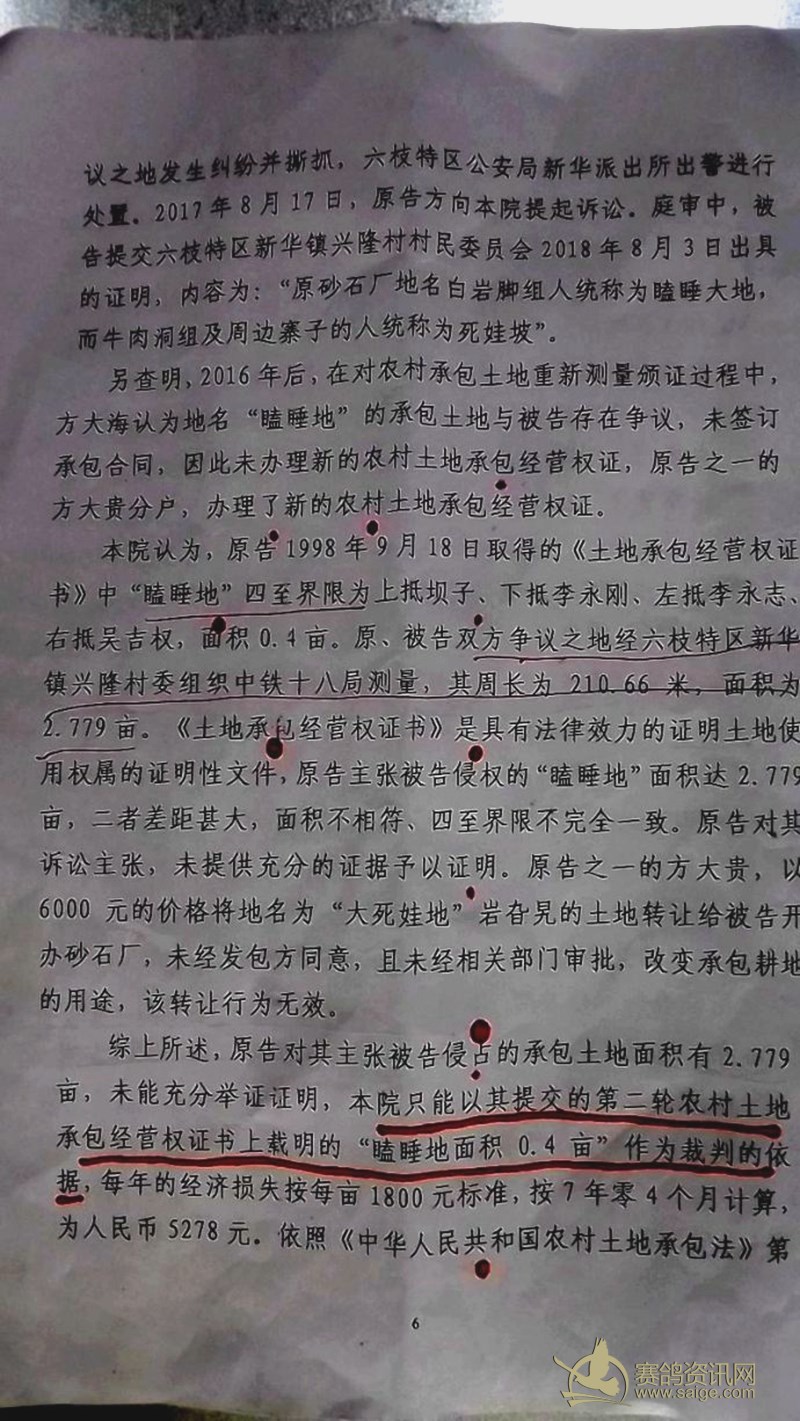 议之地发生纠纷并撕抓，六枝特区公安局新华派出所出警进行
处置。2017年8月17日，原告方向本院提起诉讼。庭审中，被
告提交六枝特区新华镇兴隆村村民委员会2018年8月3日出具
的证明，内容为：“原砂石厂地名白岩脚组人统称为瞌睡大地，
而牛肉洞组及周边寨子的人统称为死娃坡”。
另查明，2016年后，在对农村承包土地重新测量颁证过程中，
方大海认为地名“瞌睡地”的承包土地与被告存在争议，未签订
承包合同，因此未办理新的农村土地承包经营权证，原告之一的
方大贵分户，办理了新的农村土地承包经营权证。
本院认为，原告1998年9月18日取得的《土地承包经营权证
书》中“瞌睡地”四至界限为上抵坝子、下抵李永刚、左抵李永志、
右抵吴吉权，面积0.4亩。原、被告双方争议之地经六枝特区新华
镇兴隆村委组织中铁十八局测量，其周长为210.66米，面积为
2.779亩。《土地承包经营权证书》是具有法律效力的证明土地使
用权属的证明性文件，原告主张被告侵权的“瞌睡地”面积达2.779
亩，二者差距甚大，面积不相符、四至界限不完全一致。原告对其
诉讼主张，未提供充分的证据予以证明。原告之一的方大贵，以
6000元的价格将地名为“大死娃地”岩旮旯的土地转让给被告开
办砂石厂，未经发包方同意，且未经相关部门审批，改变承包耕地
的用途，该转让行为无效。
综上所述，原告对其主张被告侵占的承包土地面积有2.779
亩，未能充分举证证明，本院只能以其提交的第二轮农村土地
承包经营权证书上载明的“瞌睡地面积0.4亩”作为裁判的依
据，每年的经济损失按每亩1800元标准，按7年零4个月计算，
为人民币5278元。依照《中华人民共和国农村土地承包法》第
6
赛鸽资讯网
www.saige.com